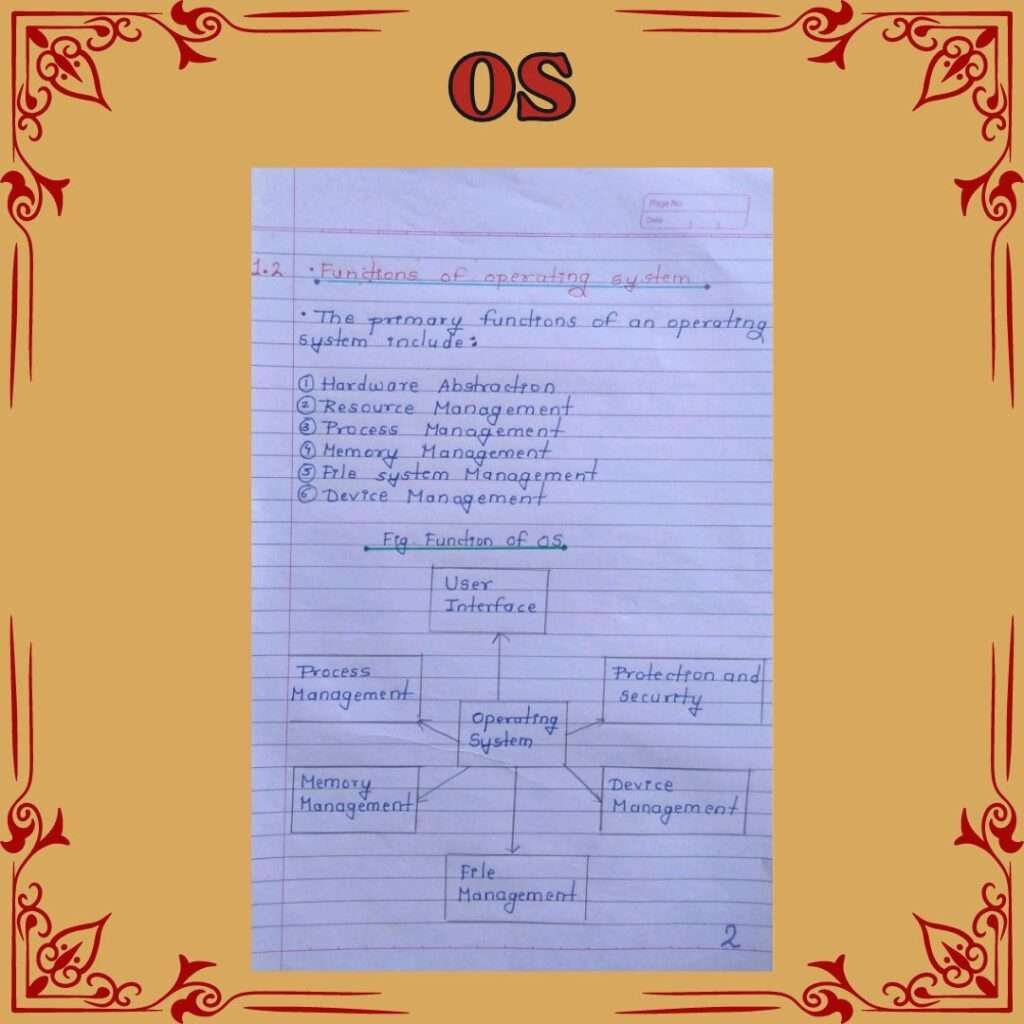 OS
Page No.
Date
1.2 • Functions of operating system
• The primary functions of an operating
system include:
① Hardware Abstraction
② Resource Management
③ Process Management
④ Memory Management
⑤ File system Management
⑥ Device Management
Fig. Function of OS.
User
Interface
Process
Management
Protection and
security
Operating
System
Memory
Management
Device
Management
File
Management
2